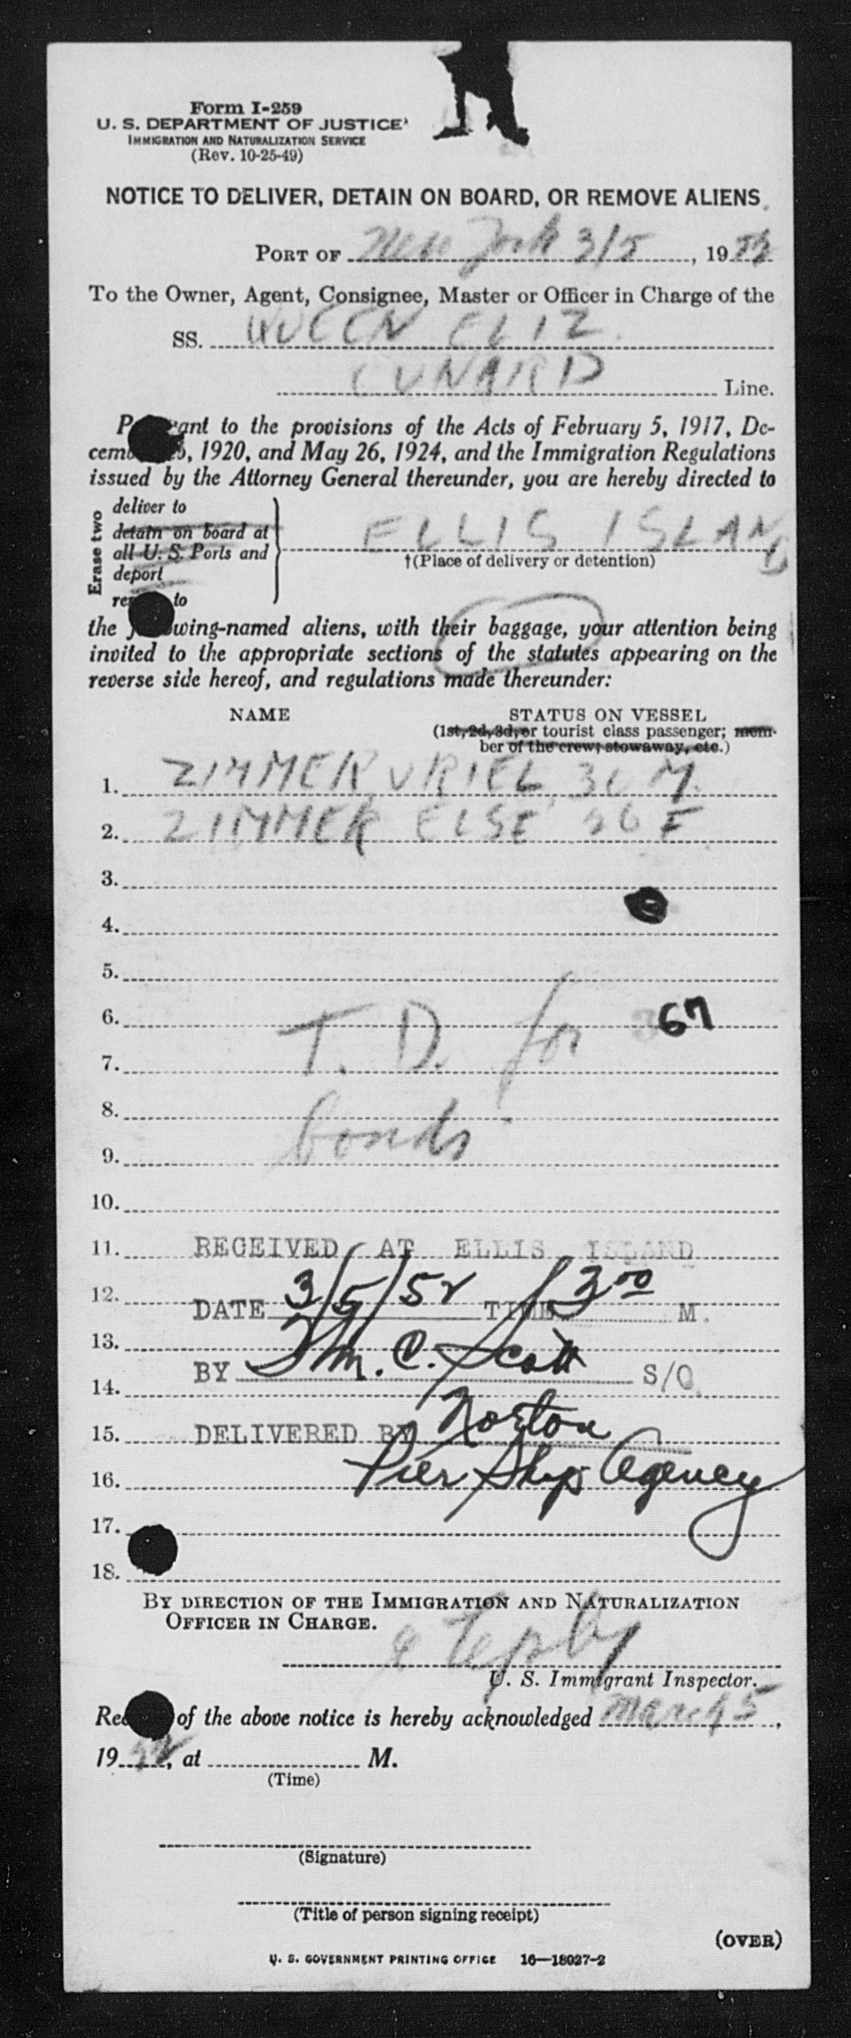 Form I-259
U. S. DEPARTMENT OF JUSTICE
IMMIGRATION AND NATURALIZATION SERVICE
(Rev. 10-25-49)
NOTICE TO DELIVER, DETAIN ON BOARD, OR REMOVE ALIENS
PORT OF New York 3/5, 1952
To the Owner, Agent, Consignee, Master or Officer in Charge of the
SS. QUEEN ELIZ.
CUNARD Line.
P ant to the provisions of the Acts of February 5, 1917, De-
cem , 1920, and May 26, 1924, and the Immigration Regulations
issued by the Attorney General thereunder, you are hereby directed to
Erase two
deliver to
detain on board at
all U. S. Ports and
deport
re to
ELLIS ISLAND
†(Place of delivery or detention)
the f wing-named aliens, with their baggage, your attention being
invited to the appropriate sections of the statutes appearing on the
reverse side hereof, and regulations made thereunder:
NAME STATUS ON VESSEL
(1st, 2d, 3d, or tourist class passenger; mem-
ber of the crew; stowaway, etc.)
1. ZIMMER, URIEL, 30 M.
2. ZIMMER ELSE 26 F
3.
4.
5.
6. 367
7. T. D. for
8.
9. bonds
10.
11. RECEIVED AT ELLIS ISLAND
12. DATE 3/5/52 TIME 3 00 M.
13.
BY Wm. C. Scott S/O
14.
15. DELIVERED BY Norton
16. Pier Ship Agency
17.
18.
BY DIRECTION OF THE IMMIGRATION AND NATURALIZATION
OFFICER IN CHARGE.
U. S. Immigrant Inspector.
Re of the above notice is hereby acknowledged March 5,
1952, at M.
(Time)
(Signature)
(Title of person signing receipt)
(OVER)
U. S. GOVERNMENT PRINTING OFFICE 16—18027-2